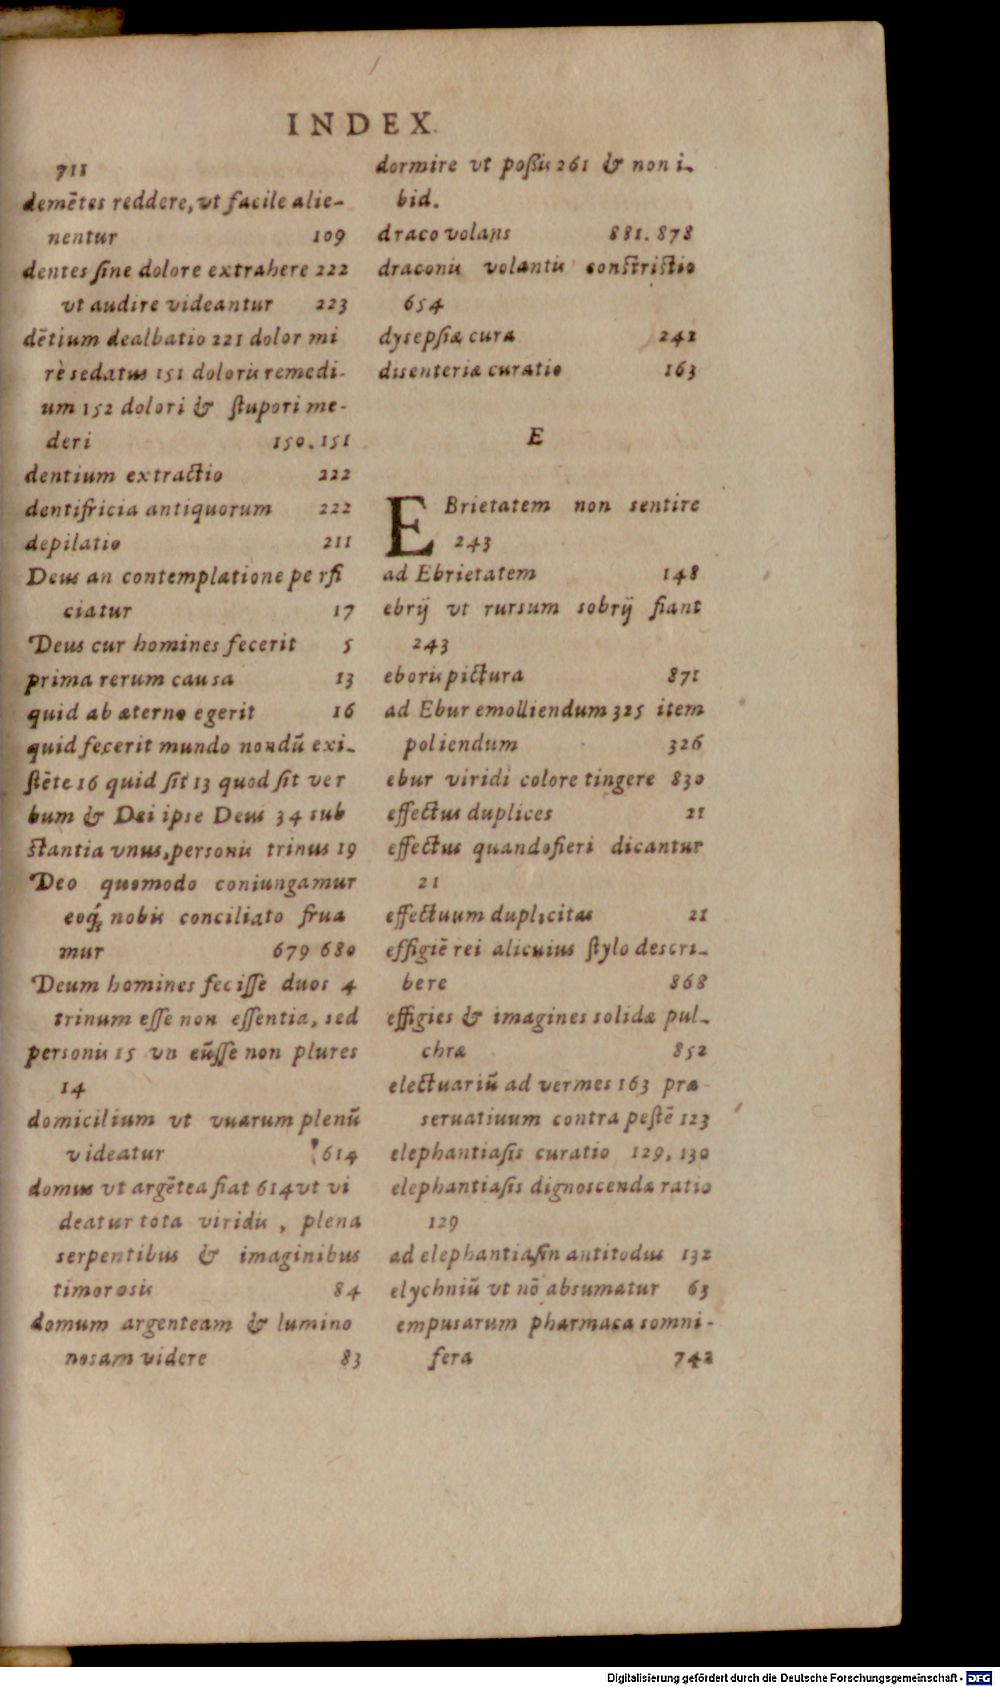 INDEX.
711
demẽtes reddere, vt facile alie-
nentur 109
dentes sine dolore extrahere 222
vt audire videantur 223
dẽtium dealbatio 221 dolor mi
rè sedatus 151 doloris remedi-
um 152 dolori & stupori me-
deri 150. 151
dentium extractio 222
dentifricia antiquorum 222
depilatio 211
Deus an contemplatione pe rfi
ciatur 17
Deus cur homines fecerit 5
prima rerum causa 13
quid ab æterno egerit 16
quid fecerit mundo nondũ exi-
stẽte 16 quid sit 13 quod sit ver
bum & Dei ipse Deus 34 sub
stantia vnus, personis trinus 19
Deo quomodo coniungamur
eoq́; nobis conciliato frua
mur 679 680
Deum homines fecisse duos 4
trinum esse non essentia, sed
personis 15 vn eũsse non plures
14
domicilium vt vuarum plenũ
videatur 614
domus vt argẽtea fiat 614 vt vi
deatur tota viridis, plena
serpentibus & imaginibus
timorosis 84
domum argenteam & lumino
nosam videre 83
dormire vt possis 261 & non i-
bid.
draco volans 881. 878
draconis volantis constrictio
654
dysepsiæ cura 242
disenteriæ curatio 163
E
EBrietatem non sentire
243
ad Ebrietatem 148
ebrij vt rursum sobrij fiant
243
eboris pictura 871
ad Ebur emolliendum 325 item
poliendum 326
ebur viridi colore tingere 830
effectus duplices 21
effectus quando fieri dicantur
21
effectuum duplicitas 21
effigiẽ rei alicuius stylo descri-
bere 868
effigies & imagines solidæ pul-
chræ 852
electuariũ ad vermes 163 præ
seruatiuum contra pestẽ 123
elephantiasis curatio 129, 130
elephantiasis dignoscendæ ratio
129
ad elephantiasin antitodus 132
elychniũ vt nõ absumatur 63
empusarum pharmaca somni-
fera 742
Digitalisierung gefördert durch die Deutsche Forschungsgemeinschaft - DFG